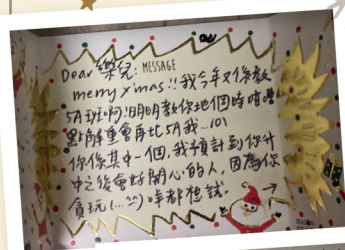 Dear 樂兒: MESSAGE
merry x'mas!! 我今年又係教
5A班啊!明明教你地個時咁嘈
點解重會再比5A我...lol
你係其中一個,我預計到你升
中之後會好開心的人,因為你
貪玩(...^^)咩都想試.